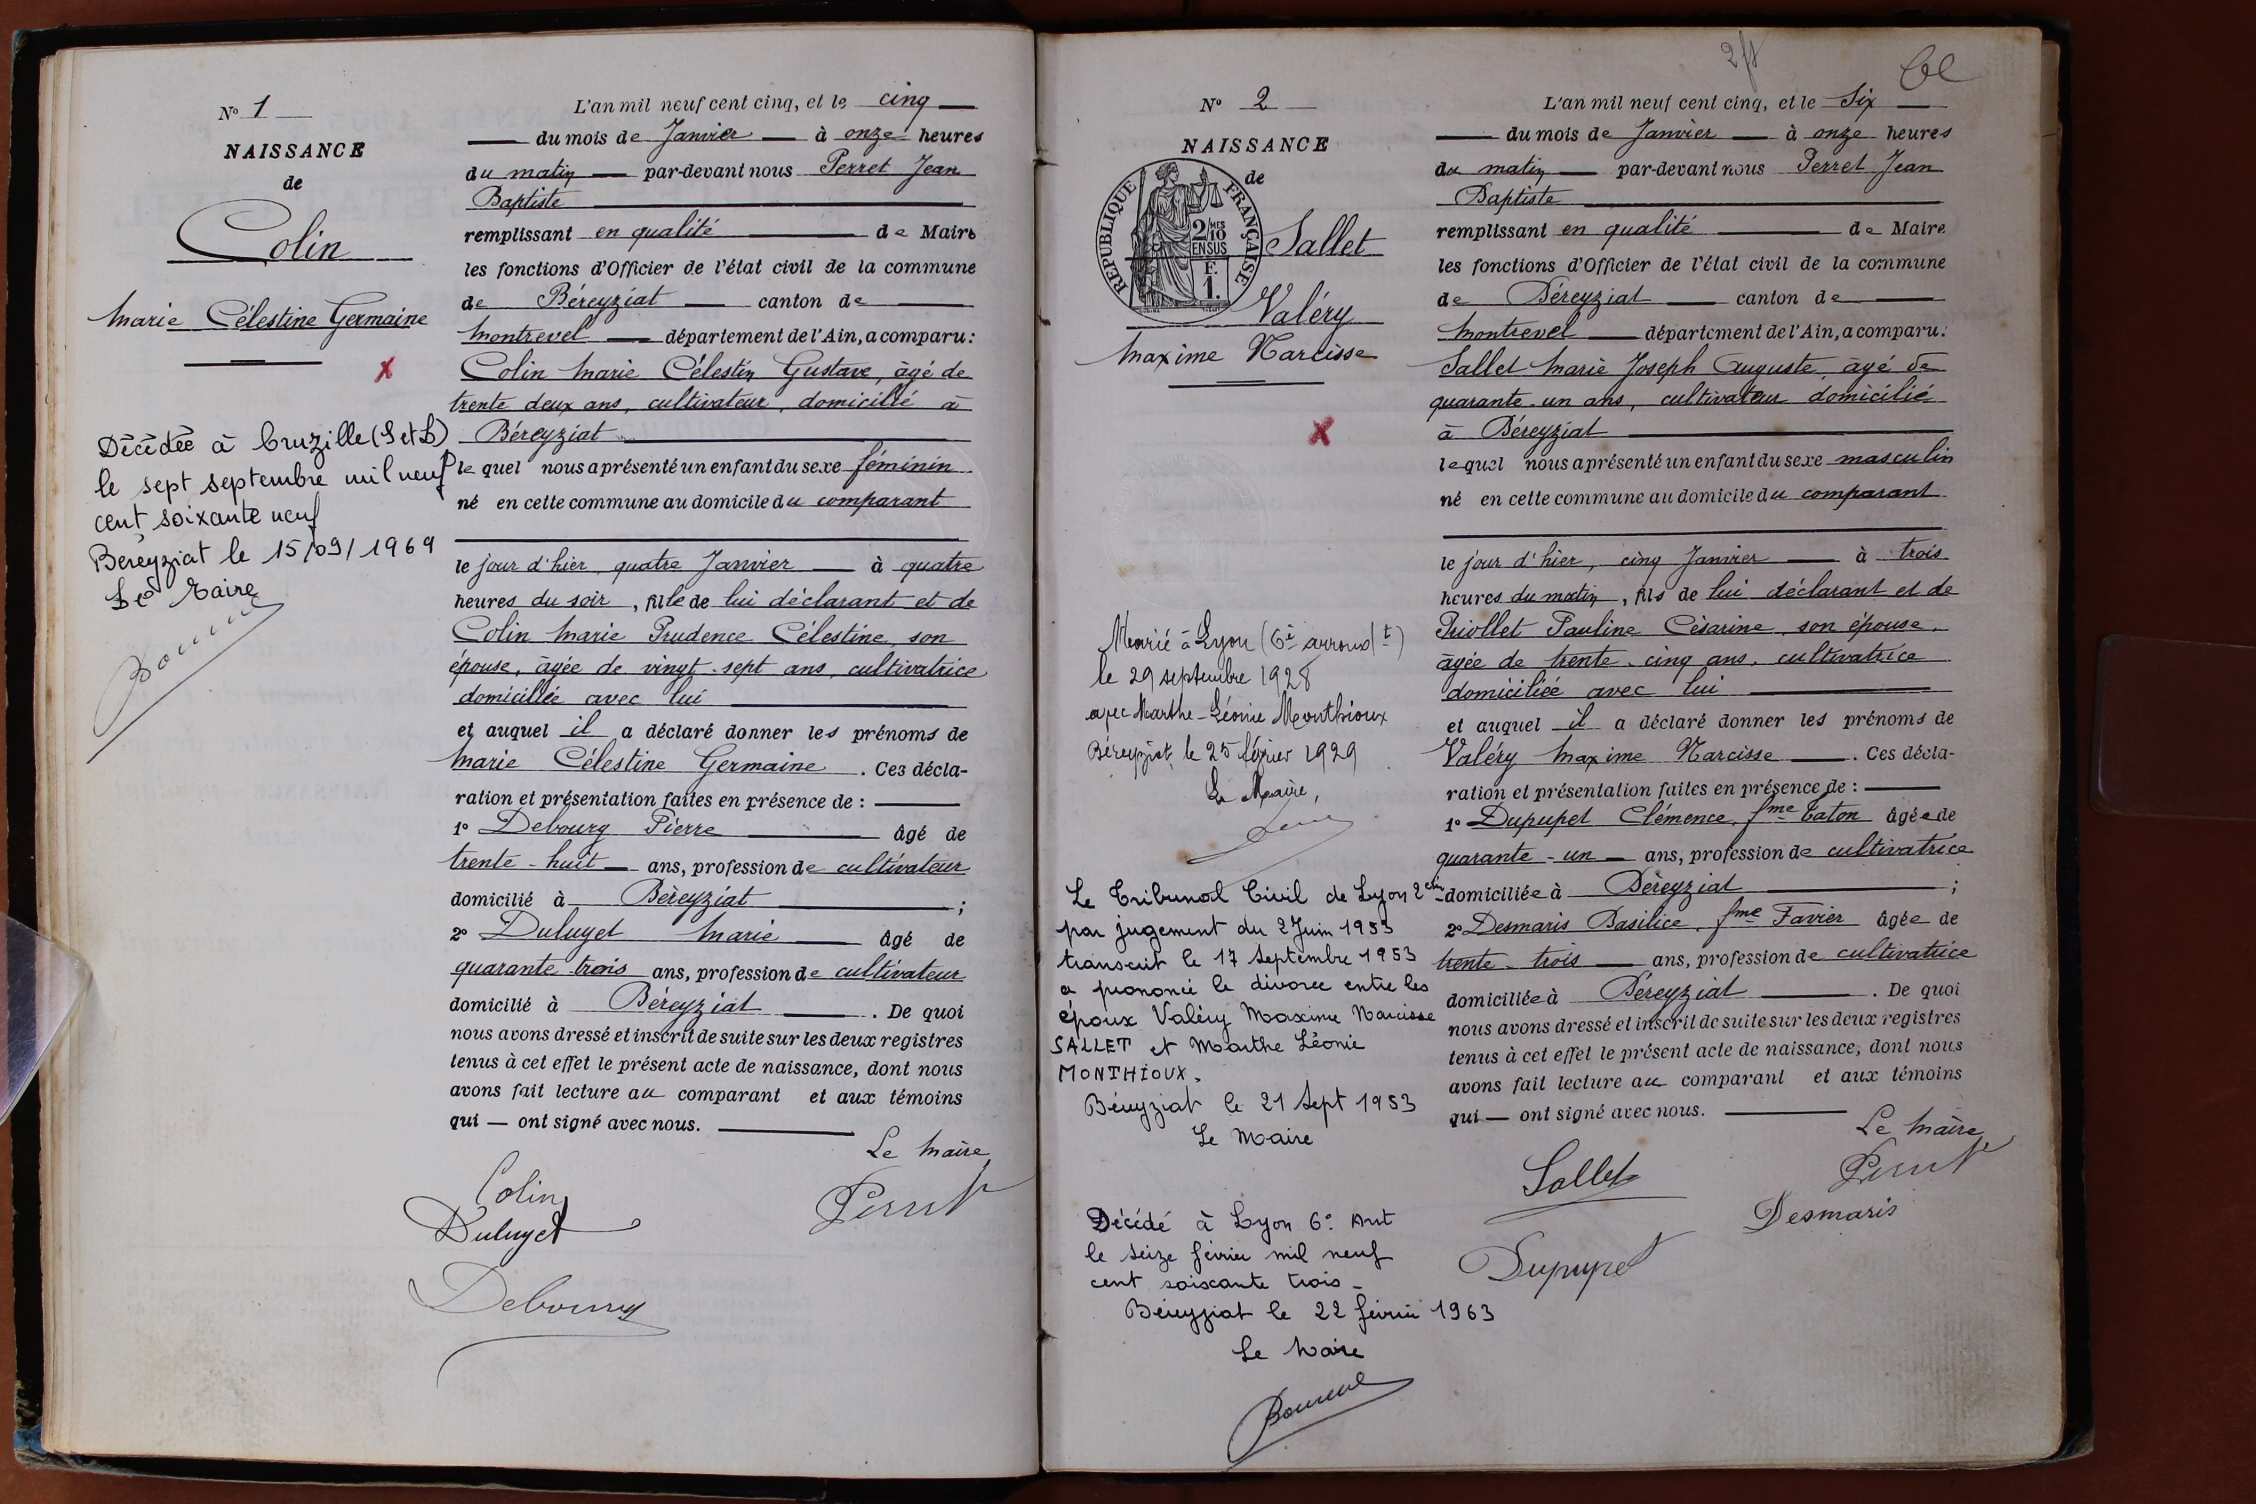 N° 1
NAISSANCE
de
Colin
Marie Célestine Germaine
Décédée à Cruzille (S et L)
le sept septembre mil neuf
cent soixante neuf
Béréyziat le 15/09/1969
Le Maire
L'an mil neuf cent cinq, et le cinq
du mois de Janvier à onze heures
du matin par-devant nous Perret Jean
Baptiste
remplissant en qualité de Maire
les fonctions d'Officier de l'état civil de la commune
de Béreyziat canton de
Montrevel département de l'Ain, a comparu:
Colin Marie Célestin Gustave, âgé de
trente deux ans, cultivateur, domicilié à
Béreyziat
lequel nous a présenté un enfant du sexe féminin
né en cette commune au domicile du comparant
le jour d'hier, quatre Janvier à quatre
heures du soir, fille de lui déclarant et de
Colin Marie Prudence Célestine, son
épouse, âgée de vingt-sept ans, cultivatrice
domiciliée avec lui
et auquel il a déclaré donner les prénoms de
Marie Célestine Germaine. Ces décla-
ration et présentation faites en présence de :
1° Debourg Pierre âgé de
trente-huit ans, profession de cultivateur
domicilié à Béreyziat ;
2° Duluyet Marie âgé de
quarante-trois ans, profession de cultivateur
domicilié à Béreyziat. De quoi
nous avons dressé et inscrit de suite sur les deux registres
tenus à cet effet le présent acte de naissance, dont nous
avons fait lecture au comparant et aux témoins
qui — ont signé avec nous.
Le Maire,
Colin
Perret
Duluyet
Debourg
2 ft
N° 2
NAISSANCE
de
REPUBLIQUE FRANÇAISE
2/MES
10
EN SUS
F.
1.
Sallet
Valéry
Maxime Narcisse
Marié à Lyon (6è arrondt)
le 29 septembre 1928
avec Marthe-Léonie Monthioux
Béreyziat, le 25 février 1929
Le Maire,
Le Tribunal Civil de Lyon 2è
par jugement du 2 Juin 1953
transcrit le 17 Septembre 1953
a prononcé le divorce entre les
époux Valéry Maxime Narcisse
SALLET et Marthe Léonie
MONTHIOUX.
Béreyziat le 21 Sept 1953
Le Maire
Décédé à Lyon 6° Art
le seize février mil neuf
cent soixante trois
Béreyziat le 22 février 1963
Le Maire
L'an mil neuf cent cinq, et le Six
du mois de Janvier à onze heures
du matin par-devant nous Perret Jean
Baptiste
remplissant en qualité de Maire
les fonctions d'Officier de l'état civil de la commune
de Béreyziat canton de
Montrevel département de l'Ain, a comparu:
Sallet Marie Joseph Auguste, âgé de
quarante-un ans, cultivateur domicilié
à Béreyziat
lequel nous a présenté un enfant du sexe masculin
né en cette commune au domicile du comparant
le jour d'hier, cinq Janvier à trois
heures du matin, fils de lui déclarant et de
Priollet Pauline Césarine, son épouse,
âgée de trente-cinq ans, cultivatrice
domiciliée avec lui
et auquel il a déclaré donner les prénoms de
Valéry Maxime Narcisse. Ces décla-
ration et présentation faites en présence de :
1° Dupupet Clémence, fme Caton âgée de
quarante-un ans, profession de cultivatrice
domiciliée à Béreyziat ;
2° Desmaris Basilice, fme Favier âgée de
trente-trois ans, profession de cultivatrice
domiciliée à Béreyziat. De quoi
nous avons dressé et inscrit de suite sur les deux registres
tenus à cet effet le présent acte de naissance, dont nous
avons fait lecture au comparant et aux témoins
qui — ont signé avec nous.
Le Maire,
Sallet
Perret
Desmaris
Dupupet